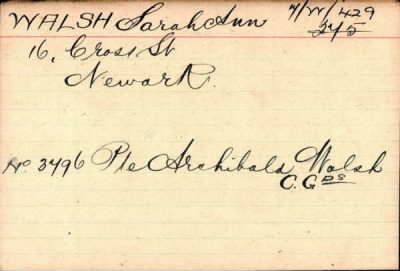 WALSH Sarah Ann 7/W/429
245
16, Cross St
Newark.
No. 3796 Pte Archibald Walsh
C. Gds